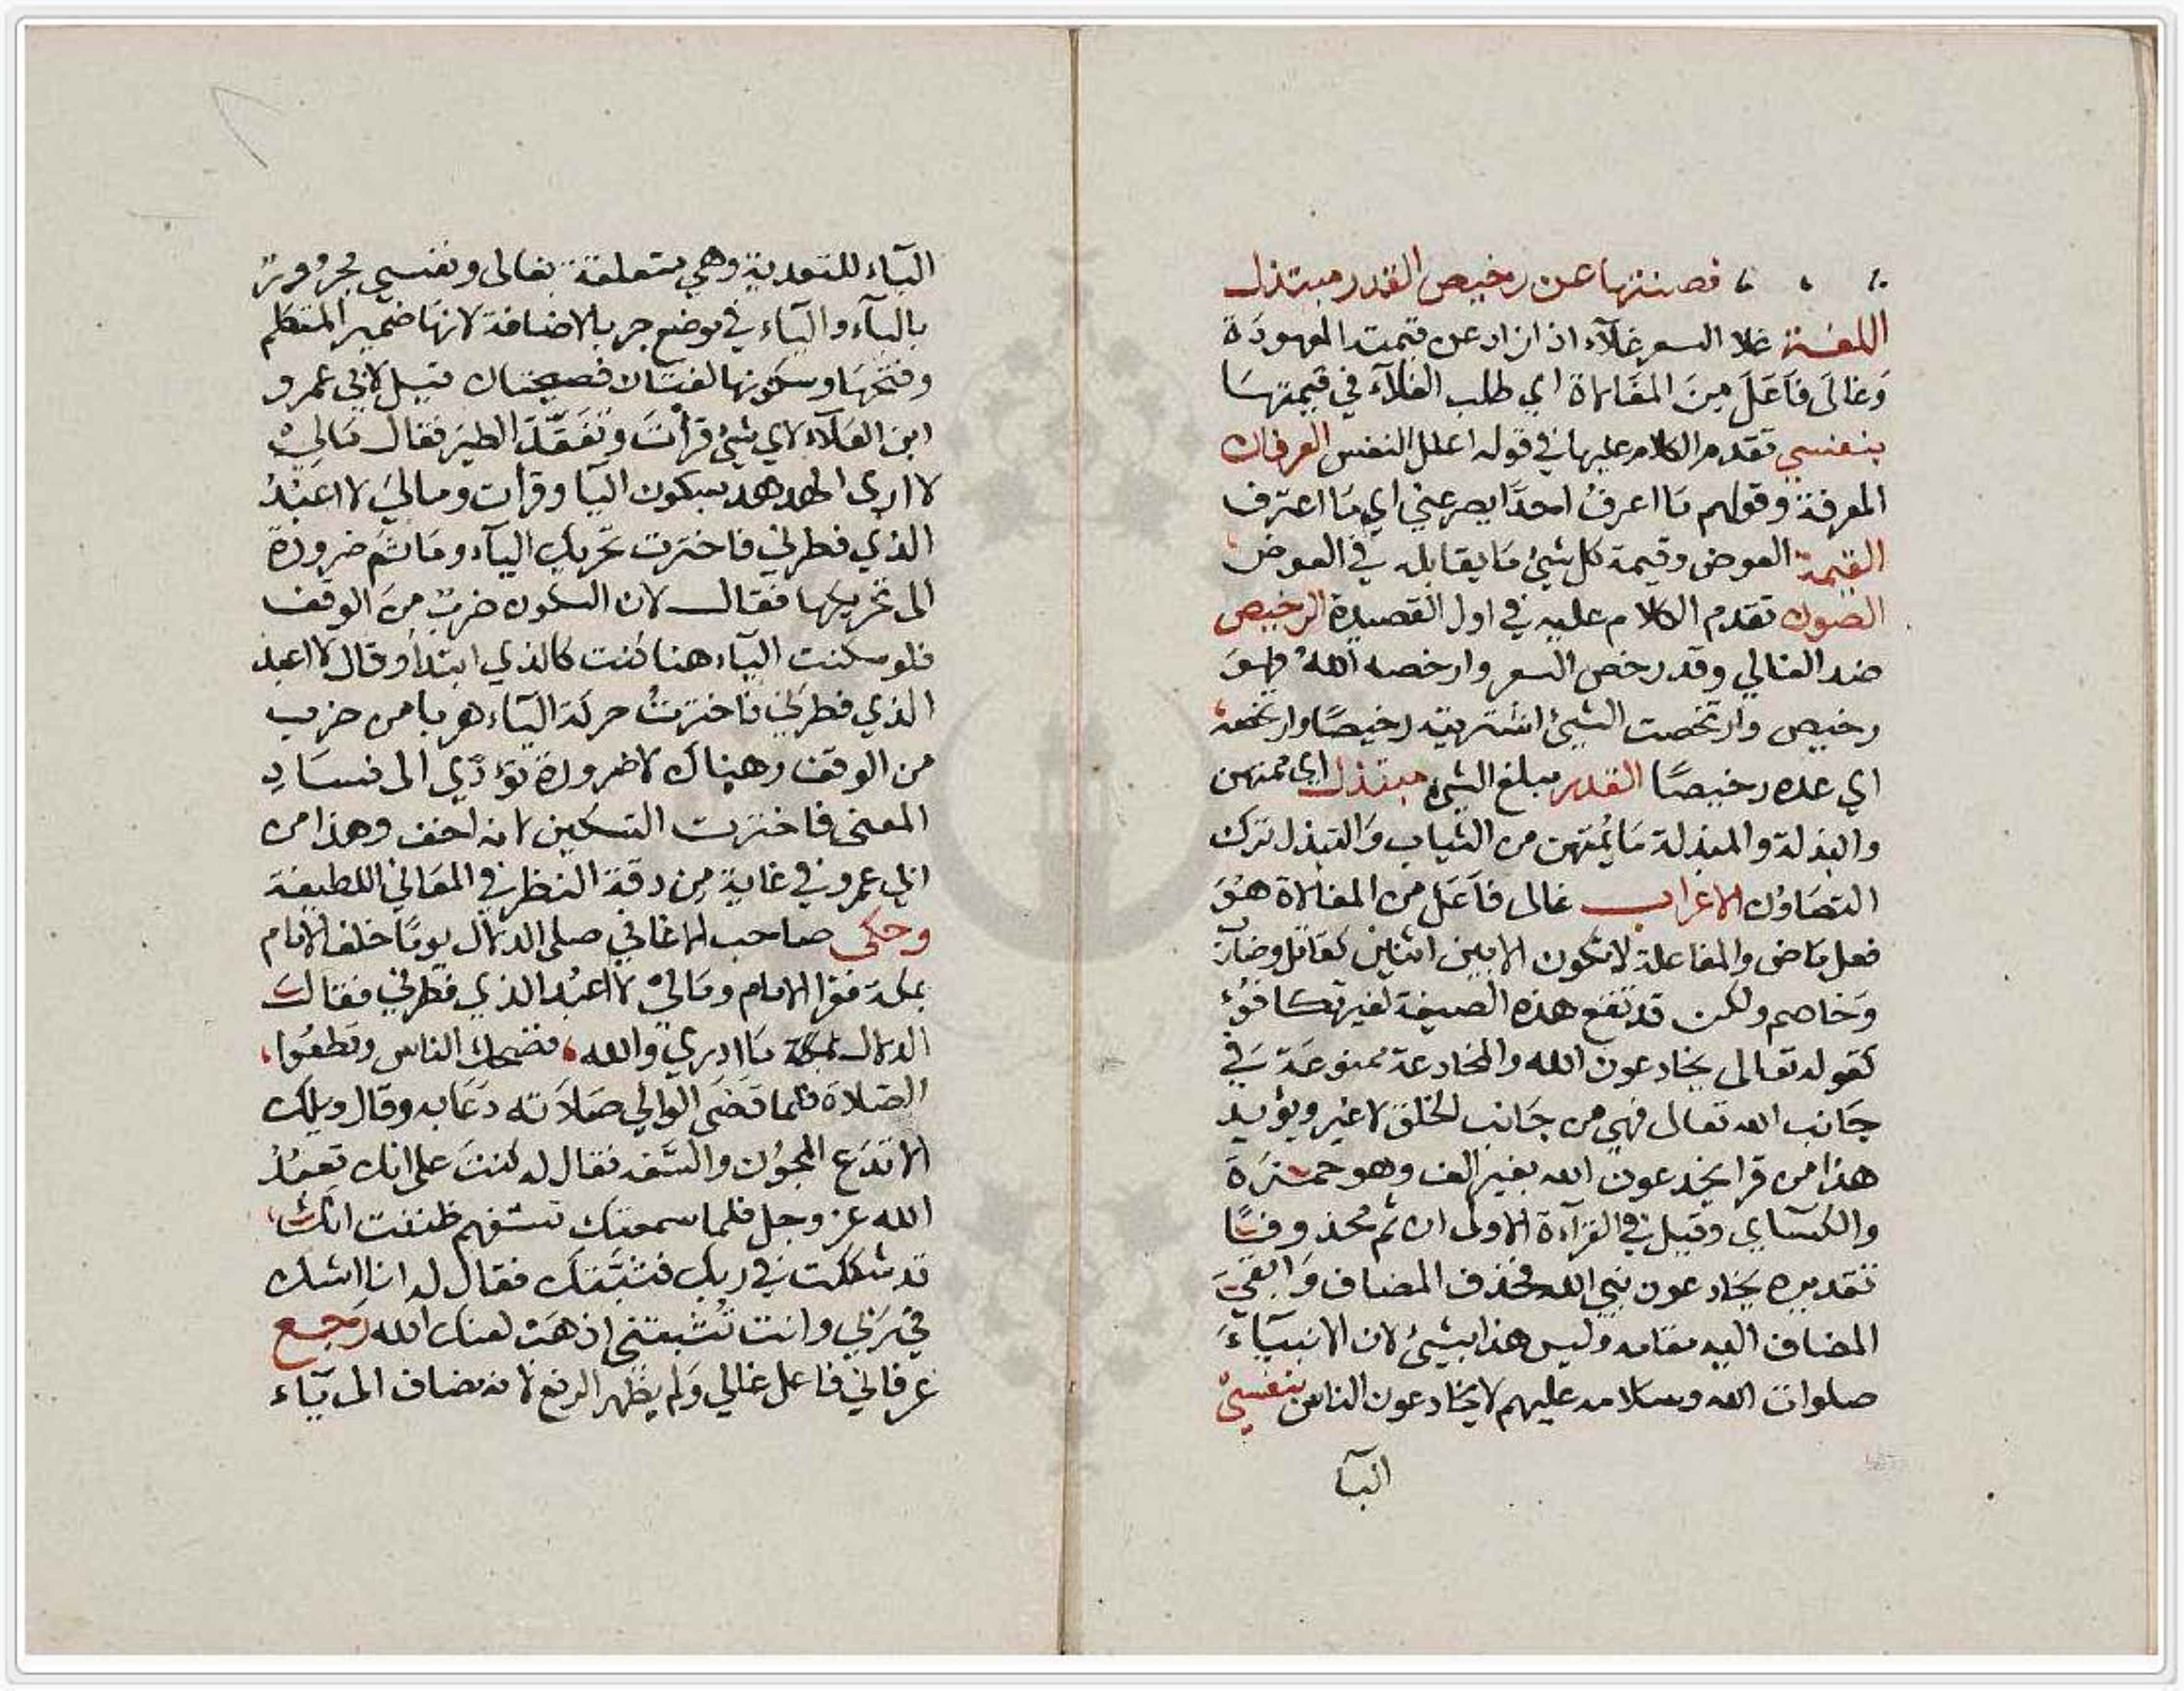 فصنتها عن رخيص القدر مبتذل
اللغة غلا السعر غلآء اذا زاد عن قيمته المعهودة
وَغالَى فَاعَلَ مِنَ المغَالاة اي طلب الغلآء في قيمتهَا
بنفسي تقدم الكلام عليها في قوله اعلل النفس العرفان
المعرفة وقولهم مَا اعرفُ لاحدٍ يصرعني اي مَا اعترف
القيمة العوض وقيمة كل شيئ مَا يقابله في العوض
الصون تقدم الكلام عليه في اول القصيدة الرخيص
ضد الغالي وقد رخص السعر وارخصه الله فهوَ
رخيص وارتخصت الشيئ اشتريته رخيصًا وارتخصه
اي عده رخيصًا القدر مبلغ الشيء مبتذل اي ممتهن
والبذلة والمبذلة مَا يُمتهن من الثياب وَالتبذل ترك
التصَاوُن الاعراب غالى فاعَل من المغالاة هُوَ
فعل مَاض والمفاعلة لا تكون الا بين اثنين كقاتل وضارَب
وَخاصم ولكن قد تقع هذه الصيغة لغير تكافؤٍ
كقوله تعالى يخادعون الله والمخادعة ممنوعَة في
جَانب الله تعالى فهي من جَانب الخلق لا غير ويؤيد
هذا من قرا يخدعون الله بغير الف وهو حمزَة
والكسآي وقيل في القرآءة الاولى ان ثم محذوفًا
تقديره يخادعون نبي الله فحذف المضاف وَابقيَ
المضاف اليه مقامه وليس هذا بشيئ لان الانبيَآءَ
صلوات الله وسلامه عليهم لا يخادعون الناس بنفسي
البآ
البآء للتعدية وهي متعلقة بغالى ونفسي مجرورة
بالبآء واليآء في موضع جر بالاضافة لانهَا ضمير المتكلم
وفتحهَا وسكونها لغتان فصيحتان قيل لابي عمرو
ابن العَلآء لاي شيئ قرأتَ وتفَقَّدَ الطيرَ فقال مَاليْ
لا ارى الهدهد بسكون اليآ وقرأت وماليَ لا اعبُدُ
الذي فطرني فاخترت تحريك اليآء ومَا ثَم ضرورة
الى تحريكها فقال لان السكون ضربٌ مِنَ الوقف
فلو سكنت اليآء هنا كنت كالذي ابتدأ وقال لا اعبد
الذي فطرني فاخترتُ حركة اليآء هربا من ضرب
من الوقف وهناك لا ضرورة تؤدّي الى فسَادِ
المعنى فاخترت التسكين لانه اخف وهذا من
ابي عمرو في غايةٍ مِن دقة النظر في المعَاني اللطيفة
وحكى صاحب الاغاني صلى الدلال يومًا خلف الامام
بمكة فقرا الامام ومَاليْ لا اعبُد الذي فطرني فقال
الدلال بمكة مَا ادري والله، فضحك الناس وقطعُوا،
الصَلاة فلما قضَى الوَالي صَلاَته دعَا به وقال ويلك
الا تدَع المجوُن والسَّفه فقال له كنتَ على انك تعبُدُ
الله عز وجل فلما سمعتك تستفهم ظننت انك
قد شككت في ربك فثبَّتُك فقال له انا اشك
في رَبي وانت تُثبتني اذهَب لعنك الله رَجع
عرفاني فاعل غالي وَلم يظهر الرفع لانه مضاف الى يَآء